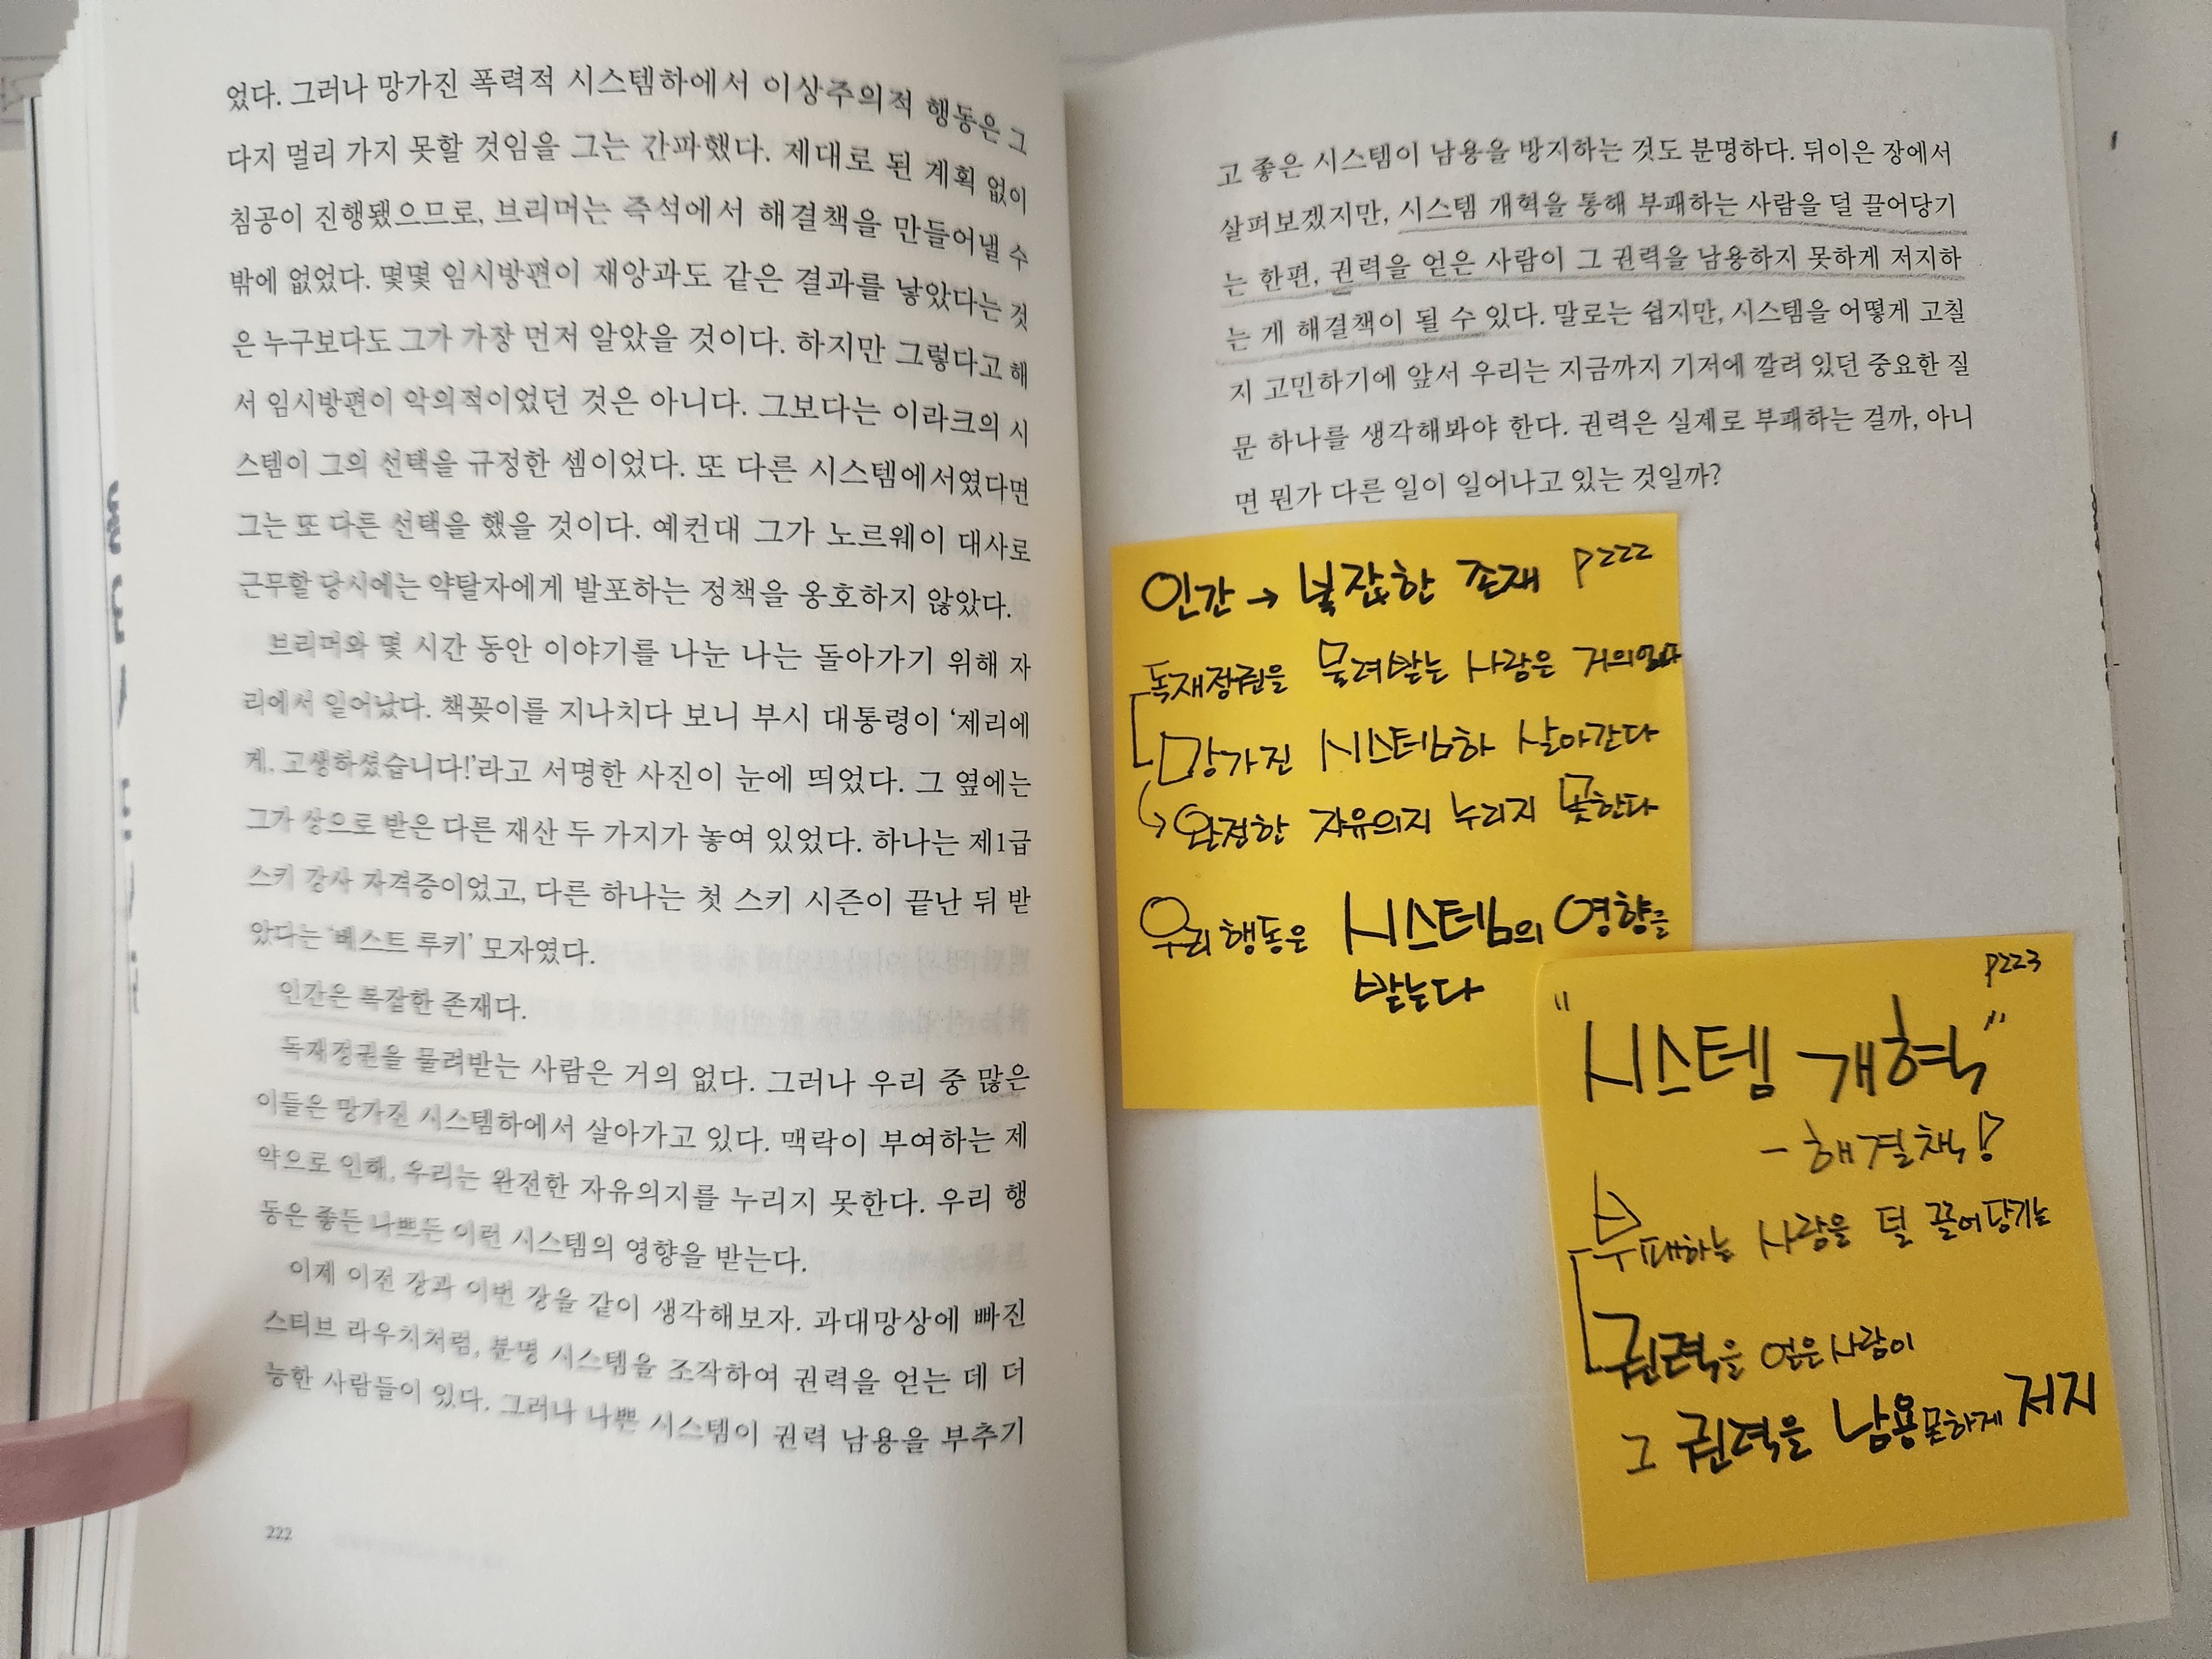 었다. 그러나 망가진 폭력적 시스템하에서 이상주의적 행동은 그
다지 멀리 가지 못할 것임을 그는 간파했다. 제대로 된 계획 없이
침공이 진행됐으므로, 브리머는 즉석에서 해결책을 만들어낼 수
밖에 없었다. 몇몇 임시방편이 재앙과도 같은 결과를 낳았다는 것
은 누구보다도 그가 가장 먼저 알았을 것이다. 하지만 그렇다고 해
서 임시방편이 악의적이었던 것은 아니다. 그보다는 이라크의 시
스템이 그의 선택을 규정한 셈이었다. 또 다른 시스템에서였다면
그는 또 다른 선택을 했을 것이다. 예컨대 그가 노르웨이 대사로
근무할 당시에는 약탈자에게 발포하는 정책을 옹호하지 않았다.
브리머와 몇 시간 동안 이야기를 나눈 나는 돌아가기 위해 자
리에서 일어났다. 책꽂이를 지나치다 보니 부시 대통령이 ‘제리에
게, 고생하셨습니다!’라고 서명한 사진이 눈에 띄었다. 그 옆에는
그가 상으로 받은 다른 재산 두 가지가 놓여 있었다. 하나는 제1급
스키 강사 자격증이었고, 다른 하나는 첫 스키 시즌이 끝난 뒤 받
았다는 ‘베스트 루키’ 모자였다.
인간은 복잡한 존재다.
독재정권을 물려받는 사람은 거의 없다. 그러나 우리 중 많은
이들은 망가진 시스템하에서 살아가고 있다. 맥락이 부여하는 제
약으로 인해, 우리는 완전한 자유의지를 누리지 못한다. 우리 행
동은 좋든 나쁘든 이런 시스템의 영향을 받는다.
이제 이전 장과 이번 장을 같이 생각해보자. 과대망상에 빠진
스티브 라우치처럼, 분명 시스템을 조작하여 권력을 얻는 데 더
능한 사람들이 있다. 그러나 나쁜 시스템이 권력 남용을 부추기
222
고 좋은 시스템이 남용을 방지하는 것도 분명하다. 뒤이은 장에서
살펴보겠지만, 시스템 개혁을 통해 부패하는 사람을 덜 끌어당기
는 한편, 권력을 얻은 사람이 그 권력을 남용하지 못하게 저지하
는 게 해결책이 될 수 있다. 말로는 쉽지만, 시스템을 어떻게 고칠
지 고민하기에 앞서 우리는 지금까지 기저에 깔려 있던 중요한 질
문 하나를 생각해봐야 한다. 권력은 실제로 부패하는 걸까, 아니
면 뭔가 다른 일이 일어나고 있는 것일까?
인간 → 복잡한 존재 p222
독재정권을 물려받는 사람은 거의없다
망가진 시스템하 살아간다
→ 완전한 자유의지 누리지 못한다
우리 행동은 시스템의 영향을
받는다
p223
"시스템 개혁"
- 해결책!
부패하는 사람을 덜 끌어당기는
권력을 얻은 사람이
그 권력을 남용못하게 저지